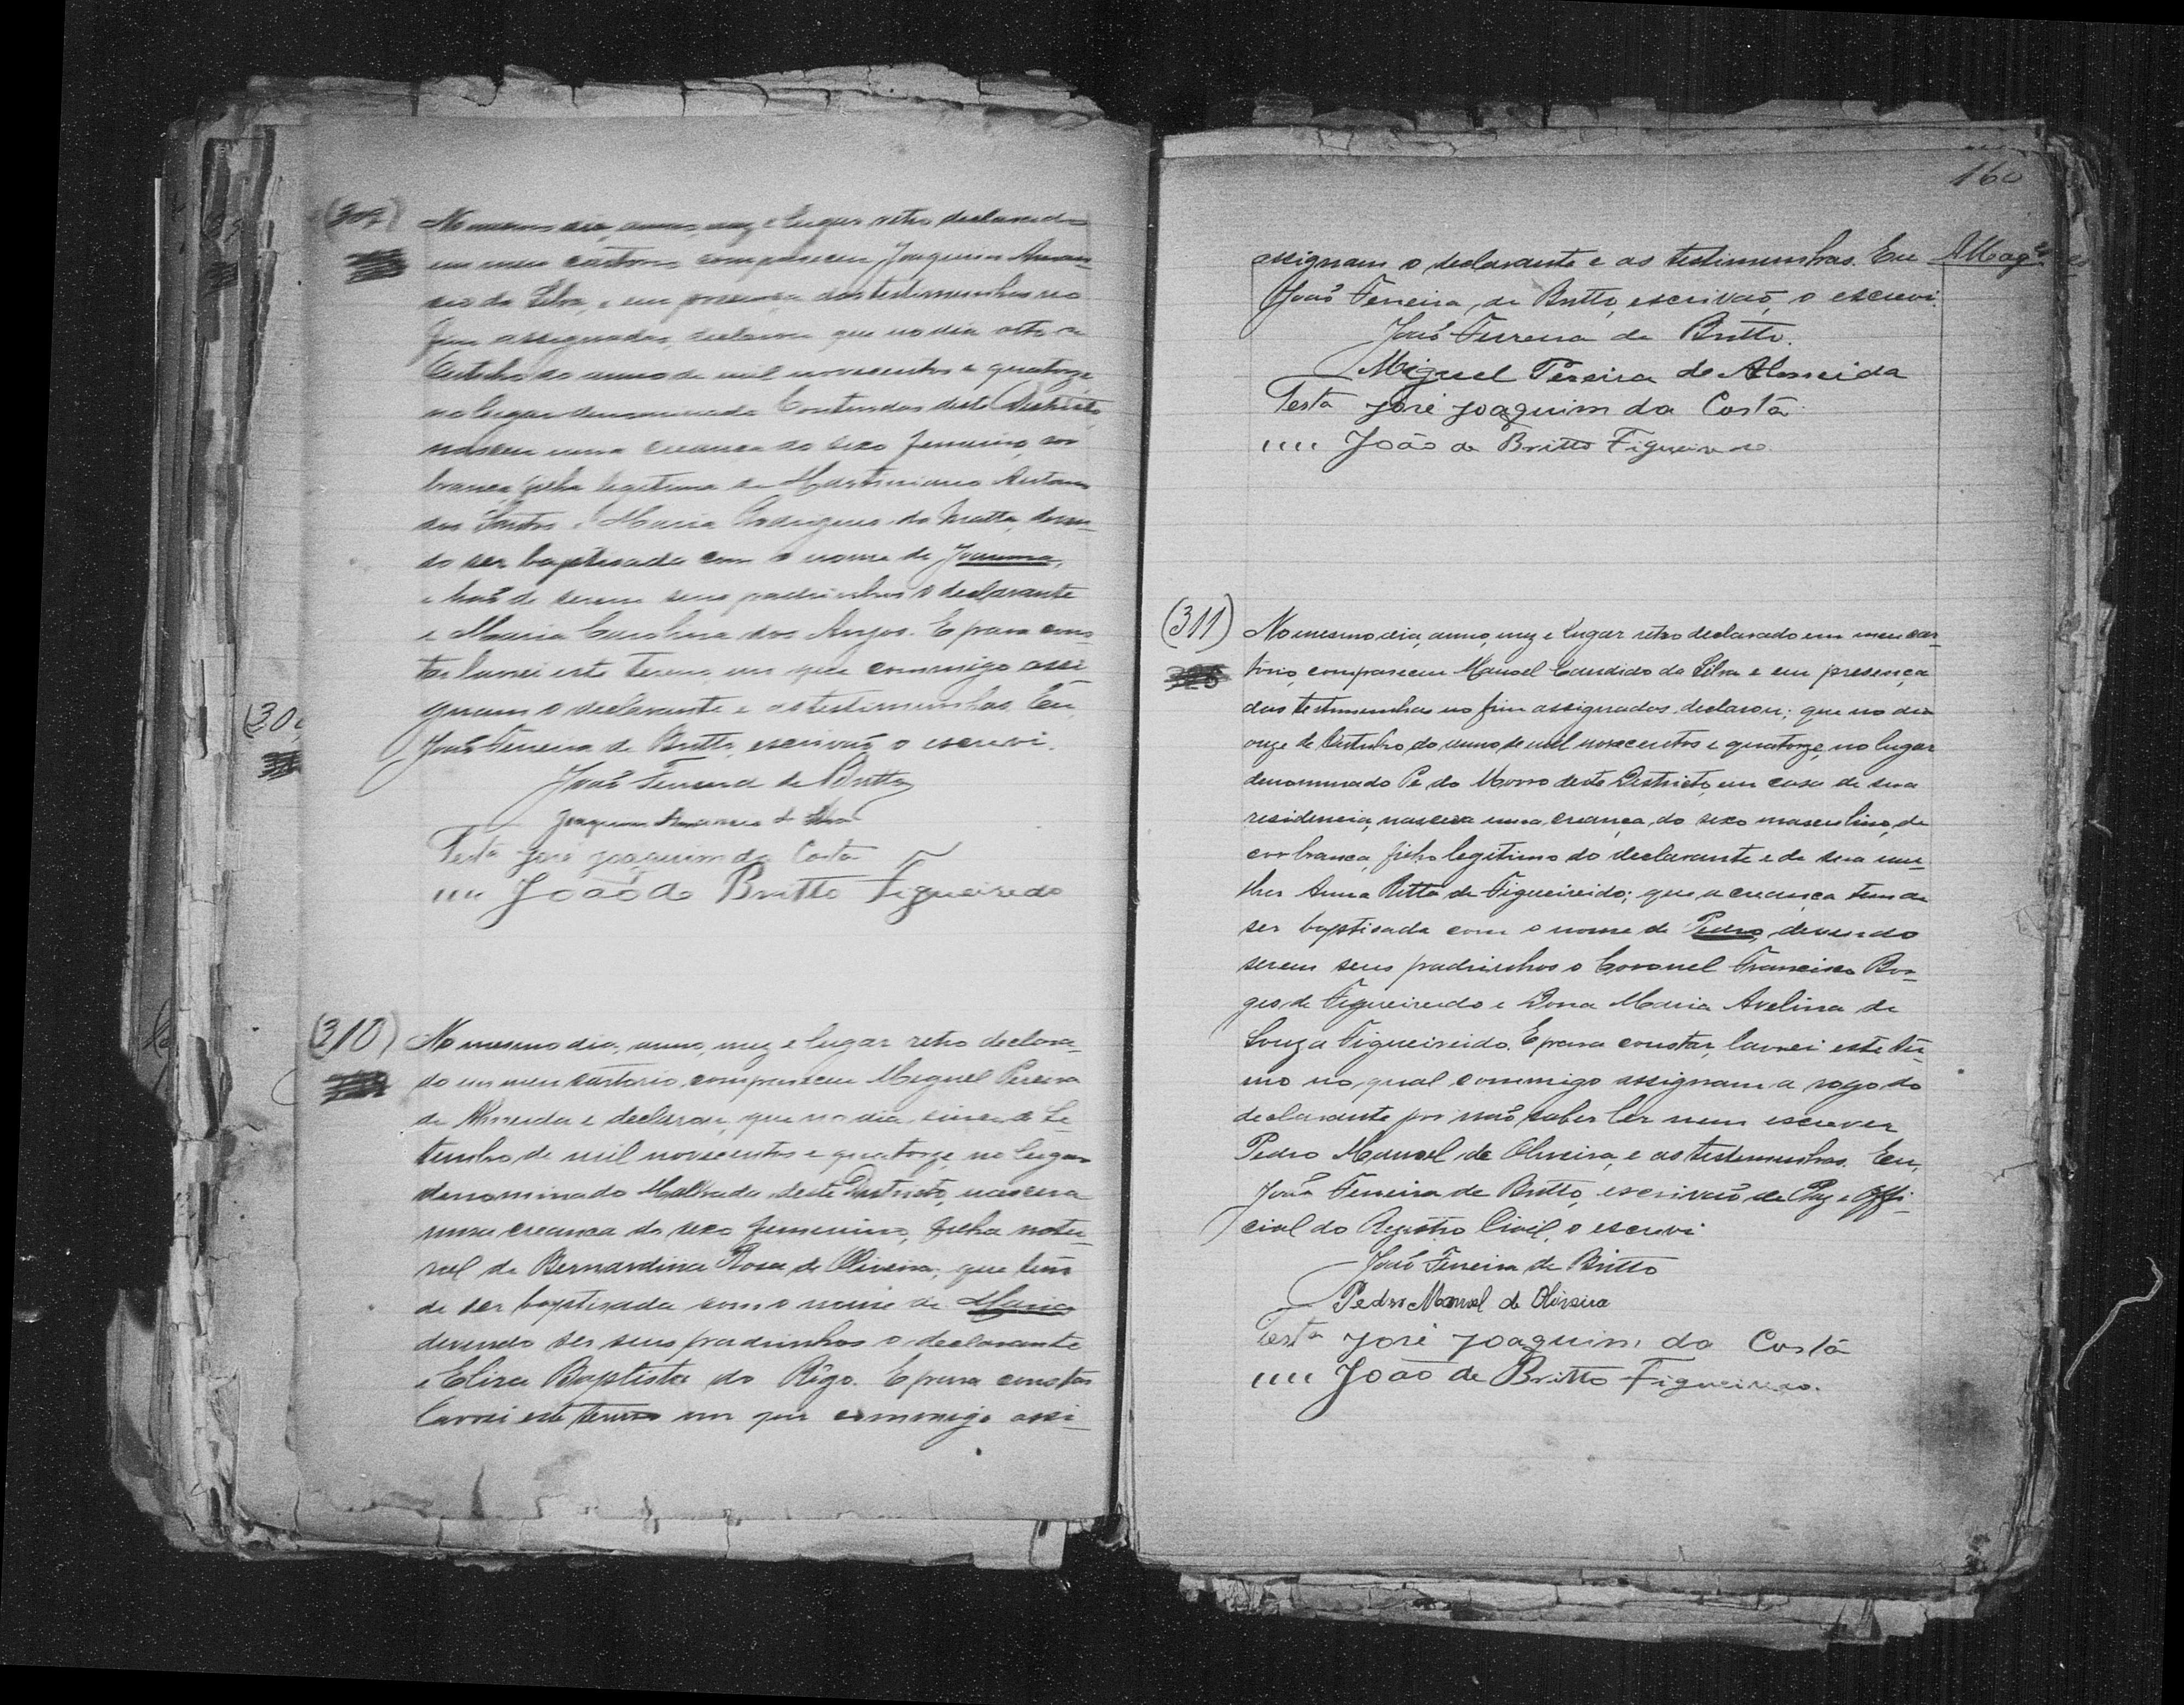 (309)
No mesmo dia, anno, mez e lugar retro declarado
em meu cartorio compareceu Joaquim Aman-
cio da Silva, e em presença das testemunhas no
fim assignadas, declarou que no dia oito de
Outubro do anno de mil novecentos e quatorze
no lugar denominado Contendas deste Districto,
nasceu uma creança do sexo femenino, cor
branca, filha legitima de Martiniano Antonio
dos Santos e Maria Rodrigues da Matta, deven-
do ser baptisada com o nome de
e haõ de serem seus padrinhos o declarante
e Maria Carolina dos Anjos. E para cons-
tar lavrei este termo em que commigo assi-
gnam o declarante e as testemunhas. Eu
Joaõ Ferreira de Britto, escrivaõ o escrevi.
Joaõ Ferreira de Britto
Joaquim Amancio da Silva
Testa José Joaquim da Costa
"" João de Britto Figueiredo
(310)
No mesmo dia, anno, mez e lugar retro declara-
do em meu cartorio, compareceu Miguel Pereira
de Almeida e declarou, que no dia cinco de Se-
tembro de mil novecentos e quatorze, no lugar
denominado Malhada deste Districto, nascera
uma creanca do sexo femenino, filha natu-
ral de Bernardina Rosa de Oliveira, que tem
de ser baptisada com o nome de Maria
devendo ser seus padrinhos o declarante
e Eliza Baptista do Rêgo. E para constar
lavrei este termo em que commigo assi-
160
assignam o declarante e as testimunhas. Eu
Joaõ Ferreira de Britto, escrivaõ, o escrevi.
Joaõ Ferreira de Britto.
Miguel Pereira de Almeida
Testa José Joaquim da Costa
"" João de Britto Figueiredo
(311)
No mesmo dia, anno, mez e lugar retro declarado em meu car-
torio, compareceu Manoel Candido da Silva e em presença
das testemunhas no fim assignados, declarou; que no dia
onze de Outubro do anno de mil novecentos e quatorze, no lugar
denominado Pé do Morro deste Districto, em casa de sua
residencia, nascera uma creança, do sexo masculino, de
cor branca, filho legitimo do declarante e de sua mu-
lher Anna Ritta de Figueireido; que a creança tem de
ser baptisada com o nome de Pedro, devendo
serem seus padrinhos o Coronel Francisco Bor-
ges de Figueireido e Dona Maria Avelina de
Souza Figueireido. E para constar, lavrei este ter-
mo no qual commigo assignam a rogo do
declarante por naõ saber ler nem escrever
Pedro Manoel de Oliveira, e as testemunhas. Eu,
Joaõ Ferreira de Britto, escrivaõ de Paz e Offi-
cial do Registro Civil, o escrevi
Joaõ Ferreira de Britto
Pedro Manoel de Oliveira
Testa José Joaquim da Costa
"" João de Britto Figueiredo.